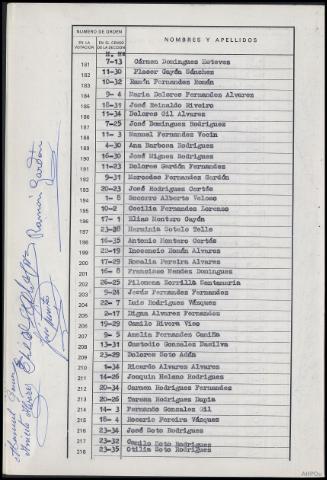 NUMERO DE ORDEN
NOMBRES Y APELLIDOS
EN LA VOTACION
EN EL CENSO DE LA SECCION
181 7-13 Cármen Domingues Esteves
182 11-30 Placer Gayón Sánchez
183 10-32 Ramón Fernandez Román
184 9- 4 Maria Dolores Fernandez Alvarez
185 18-31 José Reinaldo Riveiro
186 11-34 Dolores Gil Alvarez
187 7-25 José Domingues Rodriguez
188 11- 3 Manuel Fernandez Vocin
189 4-30 Ana Barbosa Rodriguez
190 16-30 José Migues Rodriguez
191 11-23 Dolores Gardón Fernandez
192 9-31 Mercedes Fernandez Gardón
193 20-23 José Rodriguez Cortés
194 1- 8 Socorro Alberte Veloso
195 10-2 Cecilia Fernandez Lorenzo
196 17- 1 Elias Montero Gayón
197 23-38 Herminia Sotelo Telle
198 16-35 Antonio Montero Cortés
199 22-19 Inocencio Román Alvarez
200 17-29 Rosalia Pereira Alvarez
201 16- 8 Francisco Mendez Dominguez
202 26-25 Filomena Zorrilla Santamaria
203 9-24 Jesús Fernandez Fernandez
204 22- 7 Luis Rodriguez Vázquez
205 2-17 Digna Alvarez Fernandez
206 19-29 Camilo Rivera Vico
207 9- 5 Amelia Fernandez Camiña
208 13-31 Custodio Gonzalez Dasilva
209 23-29 Dolores Soto Adán
210 1-34 Ricardo Alvarez Alvarez
211 14-26 Joaquin Heleno Rodriguez
212 20-34 Carmen Rodriguez Fernandez
213 20-26 Teresa Rodriguez Dapia
214 14- 3 Fernando Gonzalez Gil
215 18- 4 Rosario Pereira Vázquez
216 23-34 José Soto Rodriguez
217 23-32 Camilo Soto Rodriguez
218 23-35 Otilia Soto Rodriguez
Ramón Gardón
AHPOu